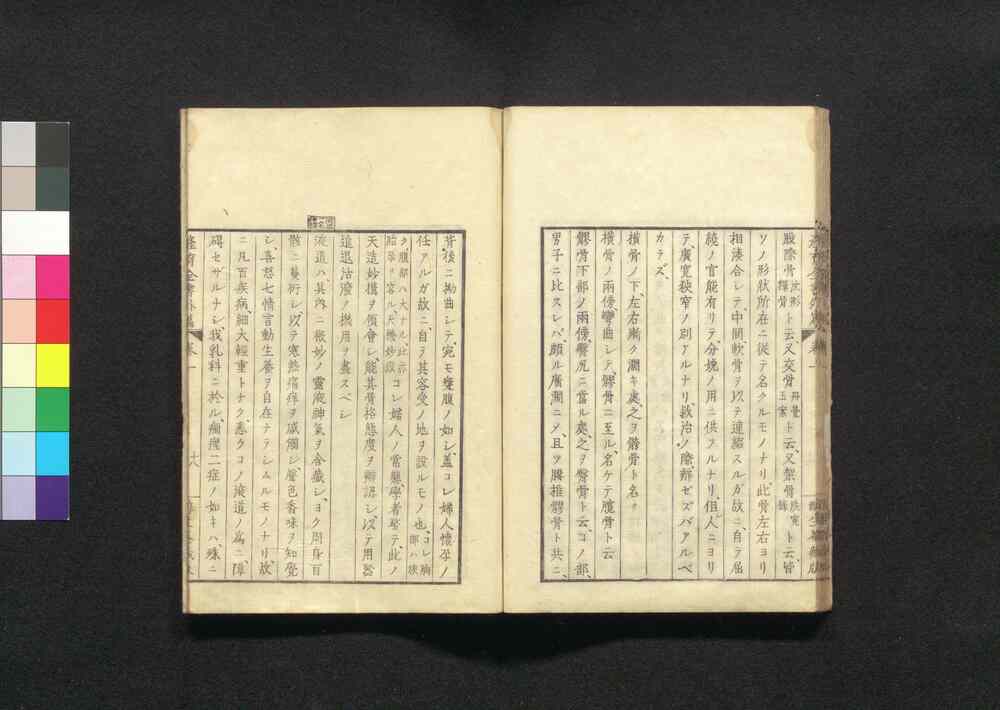 股際骨 汝形 釋骨 ト云又交骨 ト云、又絜骨 ト云皆
ソノ形狀所在ニ從テ名クルモノナリ、此骨左右ヨリ
相湊合シテ、中間軟骨ヲ以テ連綴スルガ故ニ、自テ屈
撓ノ官能有リテ、分娩ノ用ニ供スルナリ、但人ニヨリ
テ、廣寛狹窄ノ別アルナリ、救治ノ際、辨ゼズバアルベ
カラズ、
橫骨ノ下、左右漸ク濶キ處、之ヲ髂骨ト名ク
橫骨ノ兩傍、彎曲シテ、髎骨ニ至ル、名ケテ 骨ト云
髎骨下部ノ兩傍、臀尻ニ當ル處、之ヲ臀骨ト云、コノ部、
男子ニ比スレバ、頗ル廣濶ニメ、且ツ腰椎髎骨ト共ニ、
背後ニ拗曲シテ、宛モ甕腹ノ如シ、蓋コレ婦人懷孕ノ
任アルガ故ニ、自テ其容受ノ地ヲ設ルモノ也、コレ胸部ハ狹
ク腹部ハ大ナル、此亦胎孕ヲ容ル、天機妙 コレ婦人ノ常態、學者堅テ、此ノ
天造妙機ヲ領會シ、能其骨格態度ヲ辨認シ、以テ用器
進退沽療ノ機用ヲ盡スベシ
液道ハ其内ニ微妙ノ靈液神氣ヲ含蓄シ、ヨク周身百
骸ニ蔓衍シ、以テ寒熱痛痒ヲ感觸シ、聲色香味ヲ知覺
シ、喜怒七情言動生養ヲ自在ナラシムルモノナリ、故
ニ凡百疾病、細大輕重トナク、悉クコノ液道ノ爲ニ障
碍セサルナシ、我乳科ニ於ル、痼 二症ノ如キハ、殊ニ
產育全書外編 卷一 十八